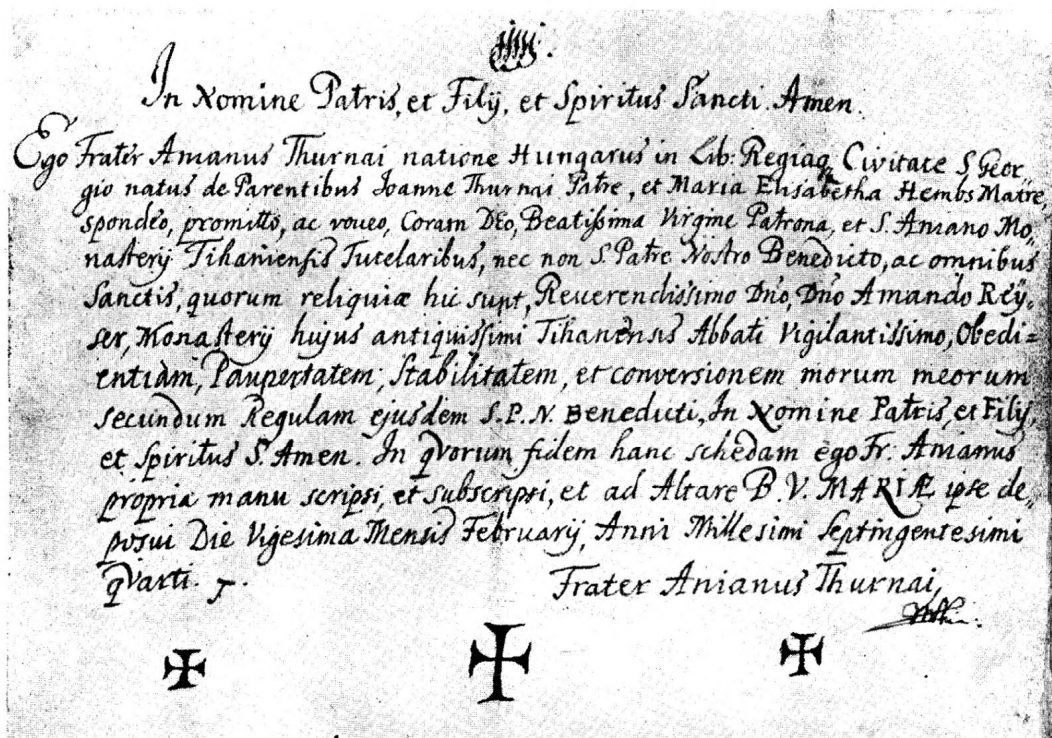 In Nomine Patris, et Filij, et Spiritus Sancti. Amen.
Ego Frater Amanus Thurnai natione Hungarus in Lib: Regiaq Civitate S. Geor„
gio natus de Parentibus Joanne Thurnai Patre, et Maria Elisabetha Hembs Matre,
spondeo, promitto, ac voveo, Coram DEo, Beatissima Virgine Patrona, et S. Aniano Mo„
nasterij Tihaniensis Tutelaribus, nec non S. Patre Nostro Benedicto, ac omnibus
Sanctis, quorum reliquiæ hic sunt, Reverendissimo Dño, Dño Amando Reÿ„
ser, Monasterij hujus antiquissimi Tihanensis Abbati Vigilantissimo, Obedi=
entiam, Paupertatem, Stabilitatem, et conversionem morum meorum
secundum Regulam ejusdem S.P.N. Benedicti, In Nomine Patris, et Filij,
et Spiritus S. Amen. In qVorum fidem hanc schedam ego Fr: Anianus
propria manu scripsi, et subscripsi, et ad Altare B.V. MARIÆ ipse de„
posui Die Vigesima Mensis Februarij, Anni Millesimi Septingentesimi
qVarti.
Frater Anianus Thurnai,